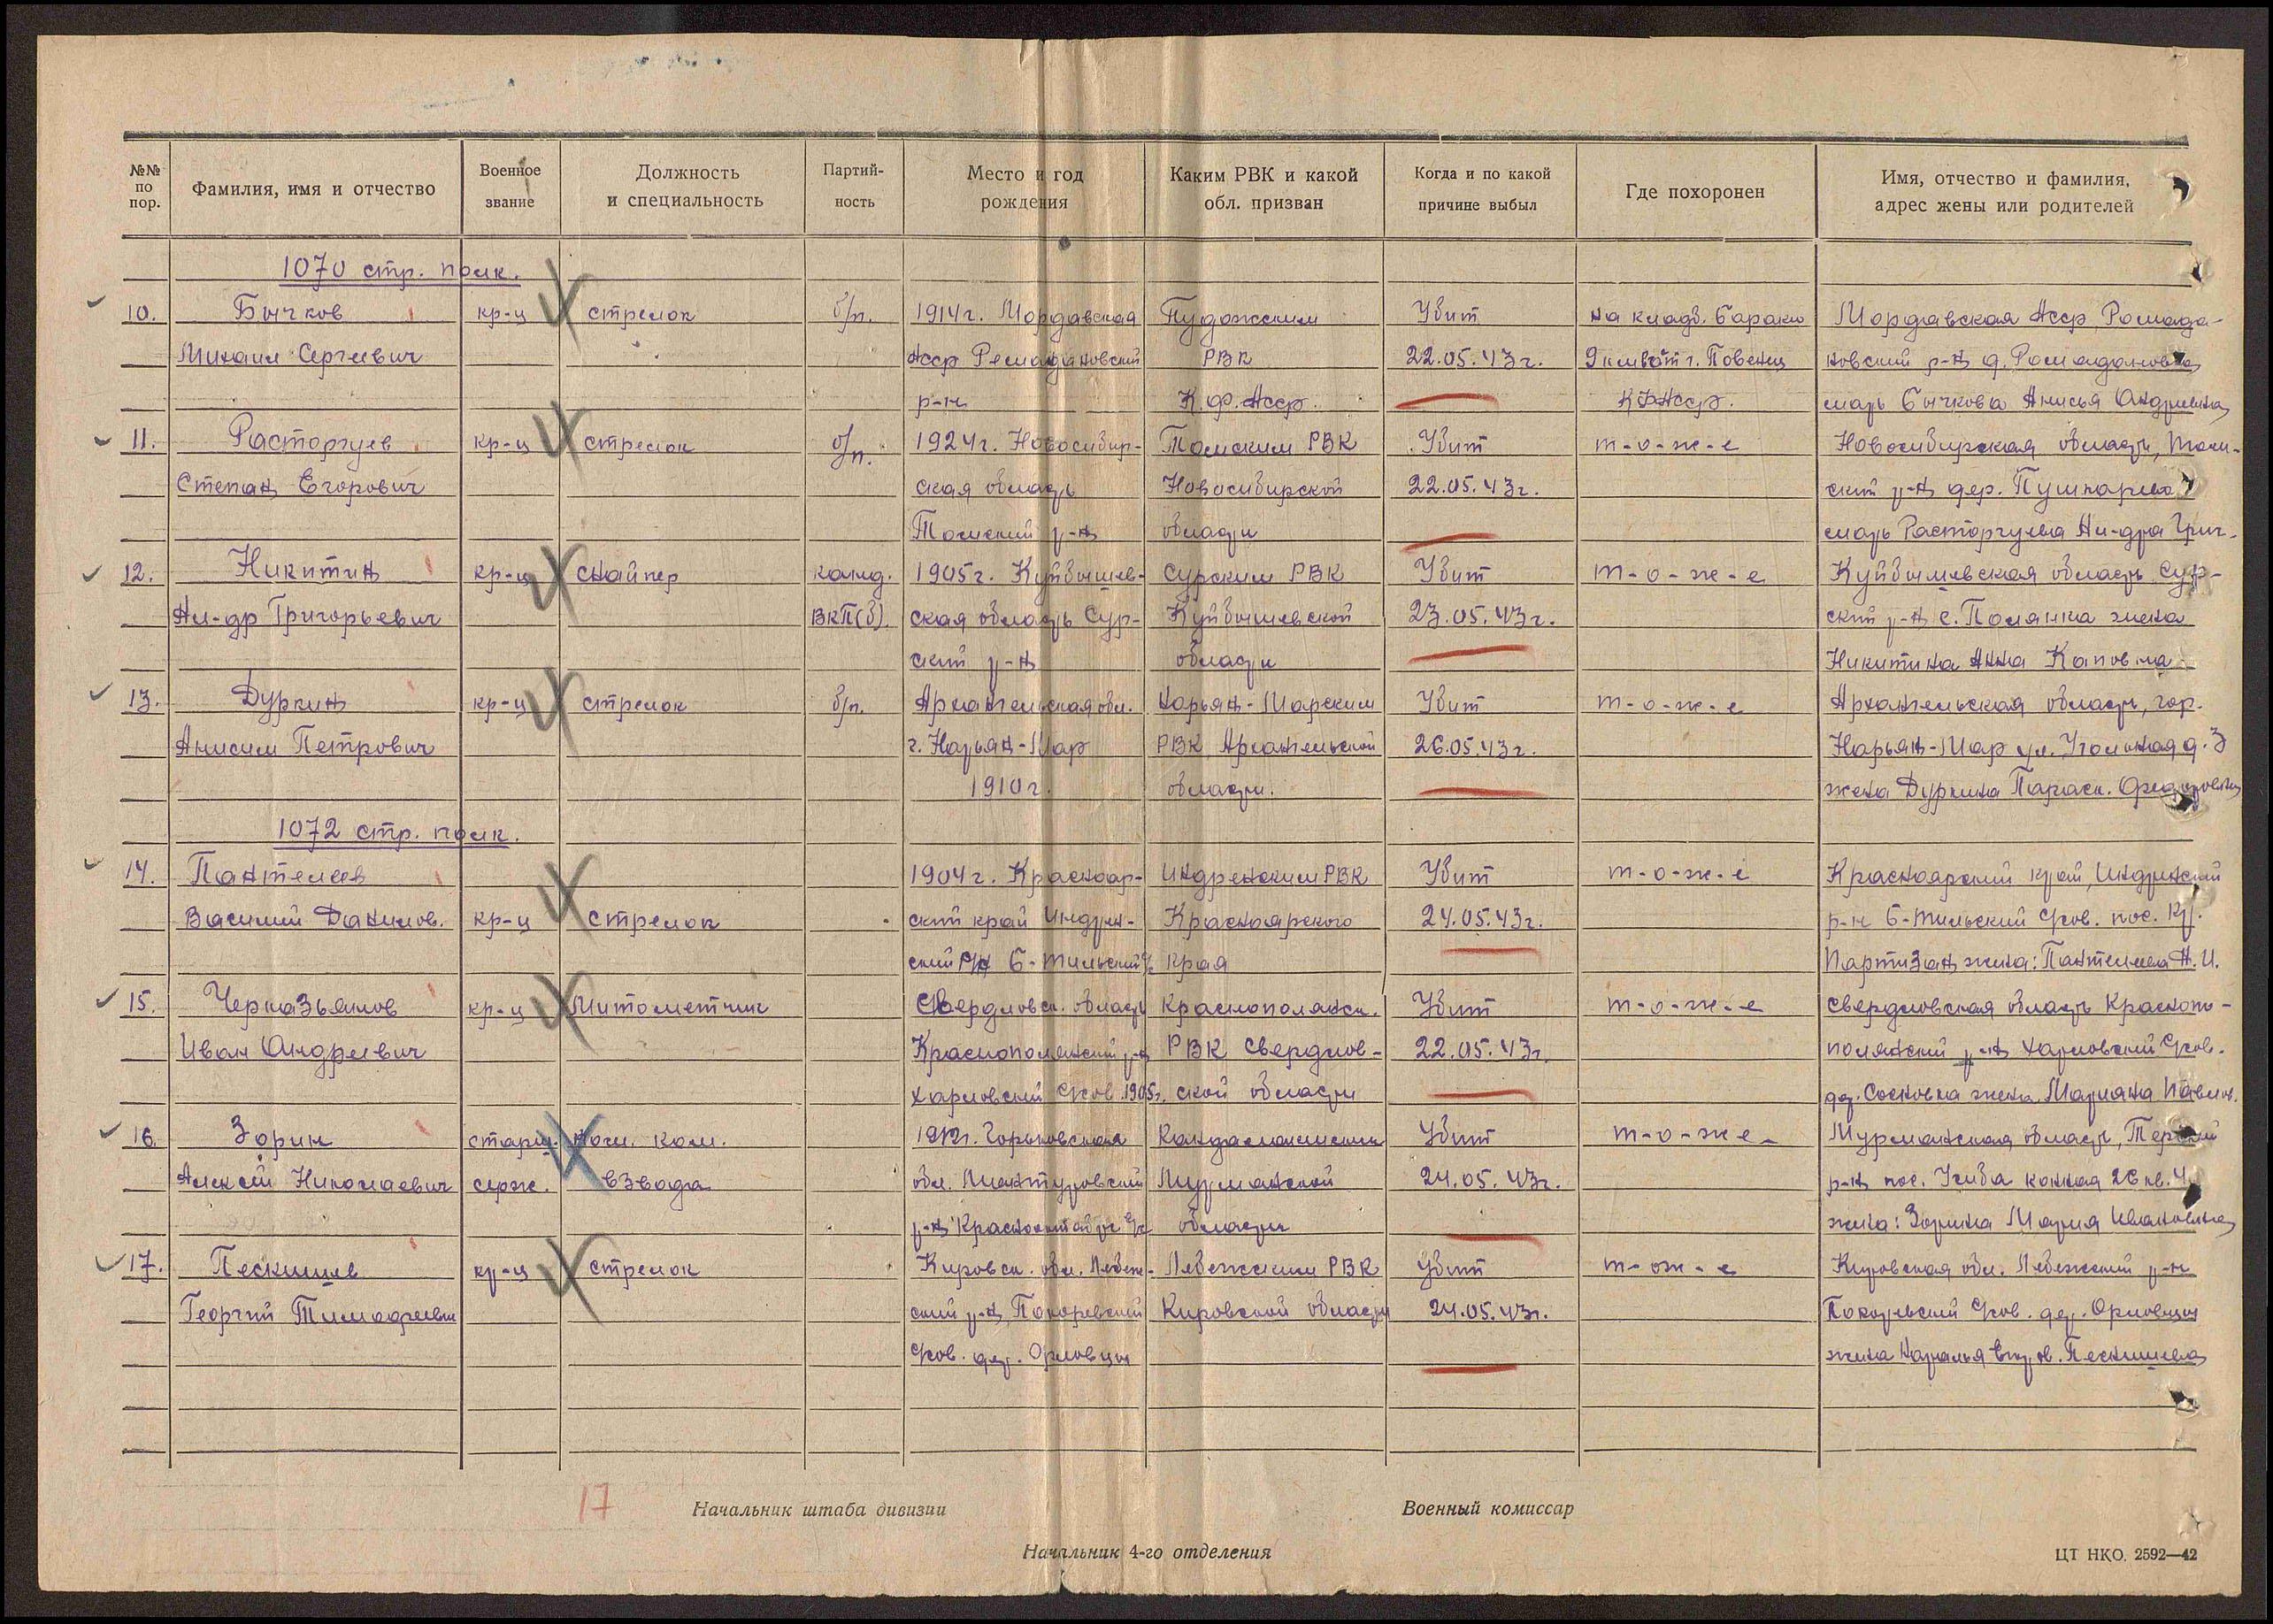 №№ по пор. Фамилия, имя и отчество Военное звание Должность и специальность Партийность Место и год рождения Каким РВК и какой обл. призван Когда и по какой причине выбыл Где похоронен Имя, отчество и фамилия, адрес жены или родителей
1070 стр. полк.
10. Бычков кр-ц стрелок б/п. 1914г. Мордавская Пудожским Убит на кладб. бараки Мордавская Асср Ромода-
Михаил Сергеевич Асср Ромадановский РВК 22.05.43г. г. Повенец новский р-н д. Ромодановка
р-н К.Ф.Асср. КФАсср. мать Бычкова Анисья Андреевна
11. Расторгуев кр-ц стрелок б/п. 1924г. Новосибир- Томским РВК Убит т-о-ж-е Новосибирская область, Том-
Степан Егорович ская область Новосибирской 22.05.43г. ский р-н дер. Пушкарево
Томский р-н области мать Расторгуева Ал-дра Григ.
12. Никитин кр-ц снайпер канд. 1905г. Куйбышев- Сурским РВК Убит т-о-ж-е Куйбышевская область Сур-
Ал-др Григорьевич ВКП(б). ская область Сур- Куйбышевской 23.05.43г. ский р-н с. Полянка жена
ский р-н области Никитина Анна
13. Дуркин кр-ц стрелок б/п. Архангельская обл. Нарьян-Марским Убит т-о-ж-е Архангельская область, гор.
Анисим Петрович г. Нарьян-Мар РВК Архангельской 26.05.43г. Нарьян-Мар ул. Угольная д. 3
1910г. области. жена Дуркина Параск. Федоровна
1072 стр. полк.
14. Пантелеев 1904г. Красноар- Индренским РВК Убит т-о-ж-е Красноярский край, Индринский
Василий Данилов. кр-ц стрелок ский край Индрин- Красноярского 24.05.43г. р-н Б-Тильский с/сов. пос. Кр.
ский р/н Б-Тильский с/с Края Партизан жена: Пантелеева Н. И.
15. Черказьянов кр-ц Минометчик Свердловск. область Краснополянск. Убит т-о-ж-е Свердловская область Краснопо-
Иван Андреевич Краснополянский р-н РВК Свердлов- 22.05.43г. полянский р-н Харловский с/сов.
Харловский с/сов. 1905г. ской области дер. Сосновка жена Марианa Павлов.
16. Зорин старш. пом. ком. 1912г. Горьковская Кандалакшским Убит т-о-ж-е Мурманская область, Терский
Алексей Николаевич серж. взвода обл. Мантуровский Мурманской 24.05.43г. р-н пос. Умба 26 кв. 4
р-н области жена: Зорина Мария Ивановна
17. Пескишев кр-ц стрелок Кировск. обл. Лебяж- Лебяжским РВК Убит т-о-ж-е Кировская обл. Лебяжский р-н
Георгий Тимофеевич ский р-н Кировской области 24.05.43г. с/сов. дер. Орловцы
с/сов. дер. Орловцы жена Наталья Егоров. Пескишева
17 Начальник штаба дивизии Военный комиссар
Начальник 4-го отделения
ЦТ НКО. 2592—42